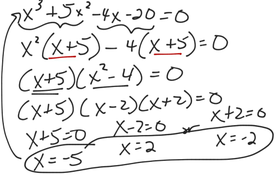 x³ + 5x² - 4x - 20 = 0
x² (x+5) - 4(x+5) = 0
(x+5)(x² - 4) = 0
(x+5)(x-2)(x+2) = 0
x+5=0 x-2=0 x+2=0
x=-5 x=2 x=-2